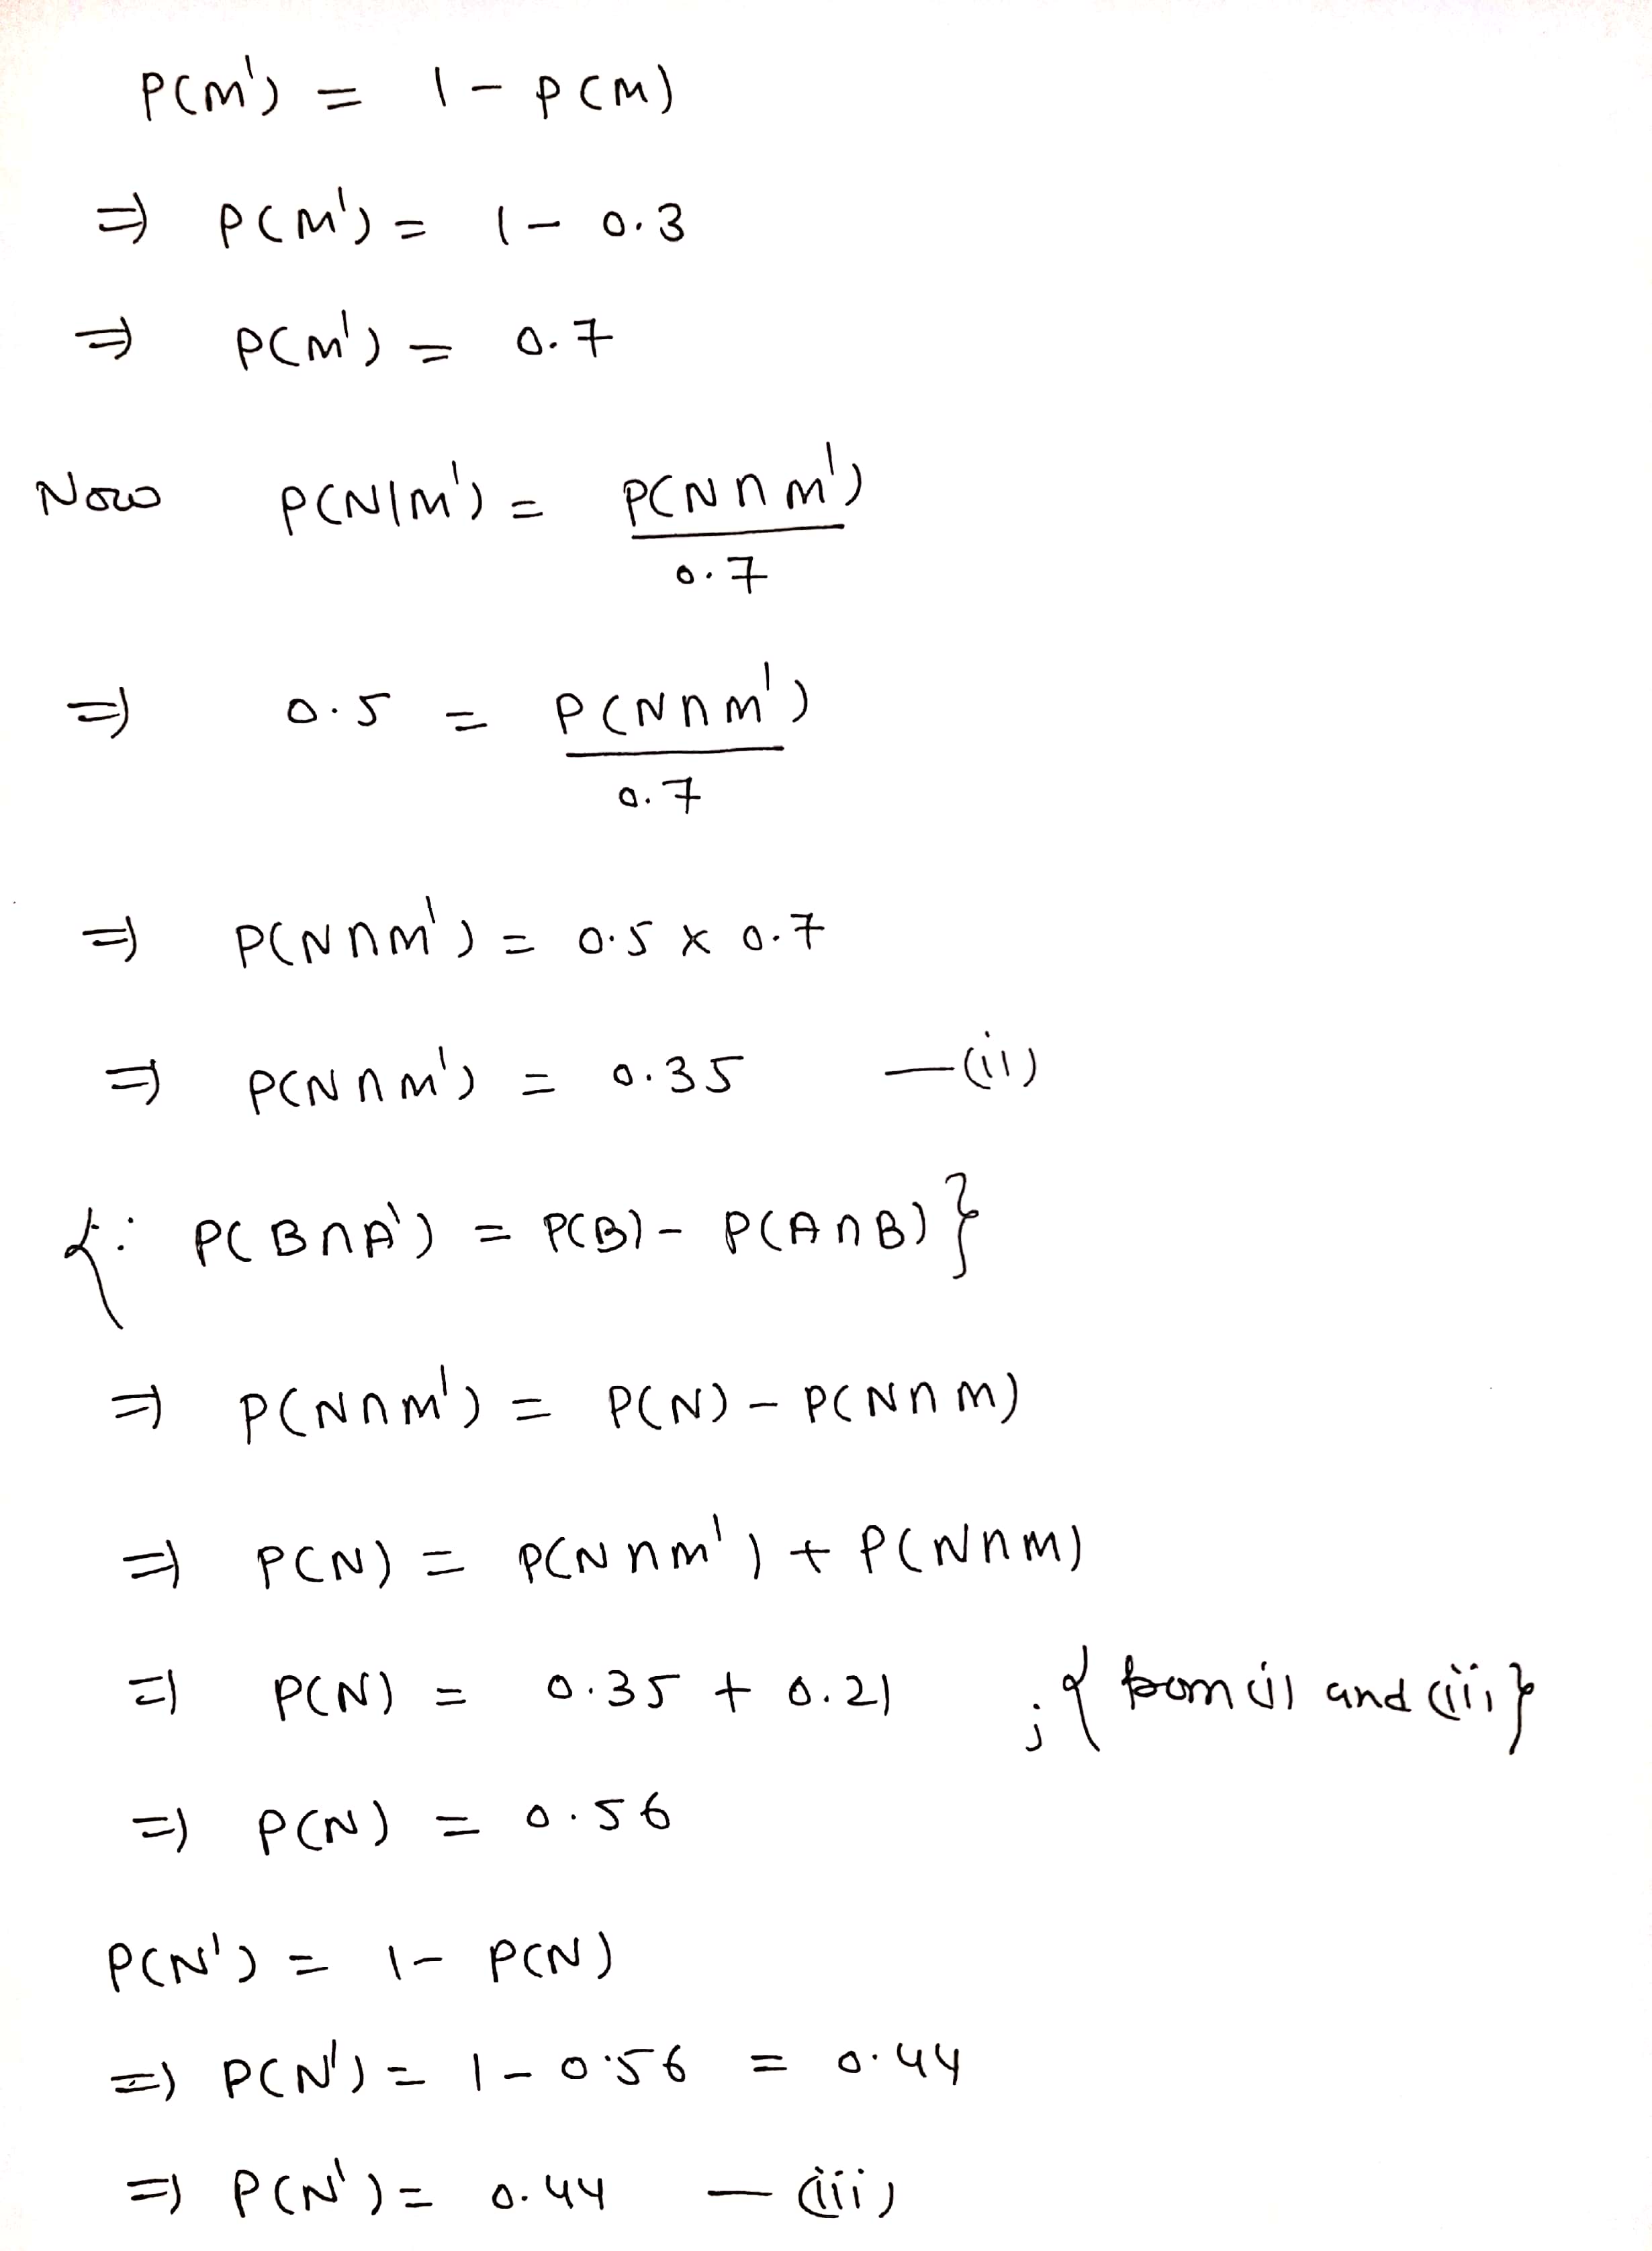 P(M') = 1 - P(M)
⇒ P(M') = 1 - 0.3
⇒ P(M') = 0.7
Now P(N|M') = P(N∩M') / 0.7
⇒ 0.5 = P(N∩M') / 0.7
⇒ P(N∩M') = 0.5 × 0.7
⇒ P(N∩M') = 0.35 —(ii)
{∵ P(B∩A') = P(B) - P(A∩B)}
⇒ P(N∩M') = P(N) - P(N∩M)
⇒ P(N) = P(N∩M') + P(N∩M)
⇒ P(N) = 0.35 + 0.21 ; {from (i) and (ii)}
⇒ P(N) = 0.56
P(N') = 1 - P(N)
⇒ P(N') = 1 - 0.56 = 0.44
⇒ P(N') = 0.44 — (iii)